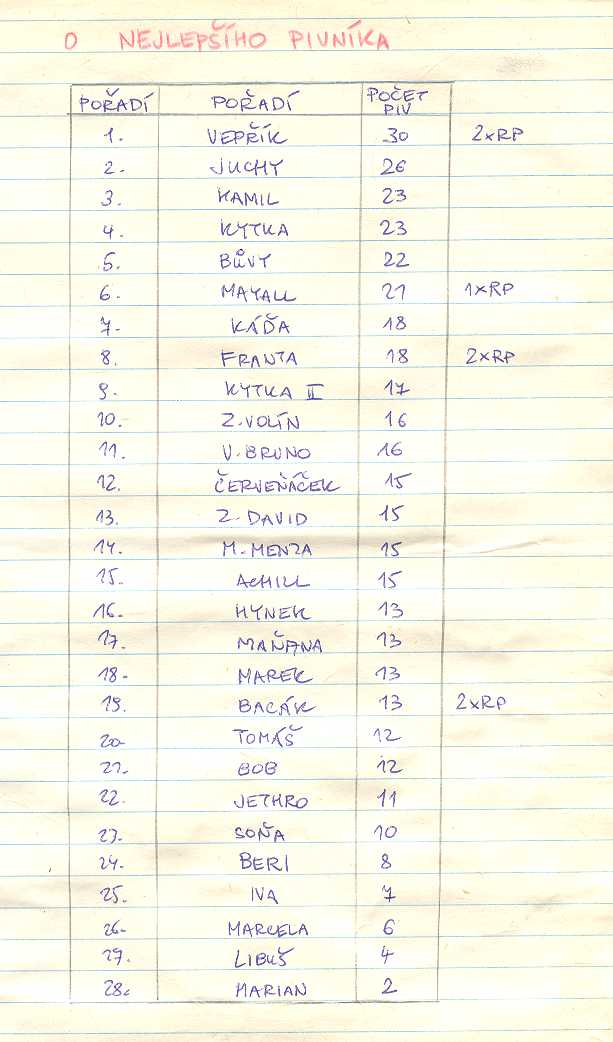 O NEJLEPŠÍHO PIVNÍKA
POŘADÍ POŘADÍ POČET PIV
1. VEPŘÍK 30 2xRP
2. JUCHY 26
3. KAMIL 23
4. KYTKA 23
5. BŮVY 22
6. MAYALL 21 1xRP
7. KÁĎA 18
8. FRANTA 18 2xRP
9. KYTKA II 17
10. Z. VOLÍN 16
11. V. BRUNO 16
12. ČERVEŇÁČEK 15
13. Z. DAVID 15
14. M. MENZA 15
15. ACHILL 15
16. HYNEK 13
17. MAŇANA 13
18. MAREK 13
19. BACÁK 13 2xRP
20. TOMÁŠ 12
21. BOB 12
22. JETHRO 11
23. SOŇA 10
24. BERI 8
25. IVA 7
26. MARCELA 6
27. LIBUŠ 4
28. MARIAN 2